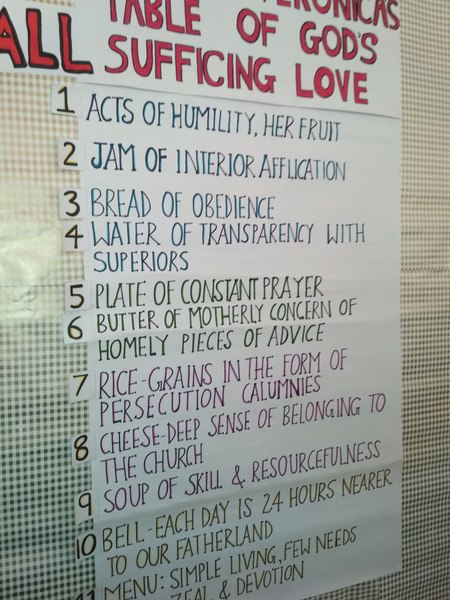 ALL
TABLE OF GOD'S
SUFFICING LOVE
1 ACTS OF HUMILITY, HER FRUIT
2 JAM OF INTERIOR AFFLICATION
3 BREAD OF OBEDIENCE
4 WATER OF TRANSPARENCY WITH
SUPERIORS
5 PLATE OF CONSTANT PRAYER
6 BUTTER OF MOTHERLY CONCERN OF
HOMELY PIECES OF ADVICE
7 RICE-GRAINS IN THE FORM OF
PERSECUTION CALUMNIES
8 CHEESE-DEEP SENSE OF BELONGING TO
THE CHURCH
9 SOUP OF SKILL & RESOURCEFULNESS
10 BELL-EACH DAY IS 24 HOURS NEARER
TO OUR FATHERLAND
11 MENU: SIMPLE LIVING, FEW NEEDS
ZEAL & DEVOTION